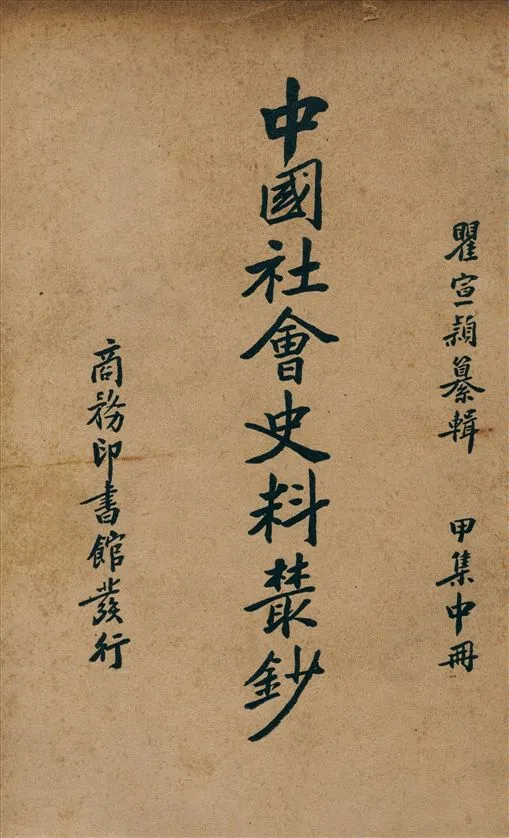 瞿宣穎纂輯 甲集中冊
中國社會史料叢鈔
商務印書館發行